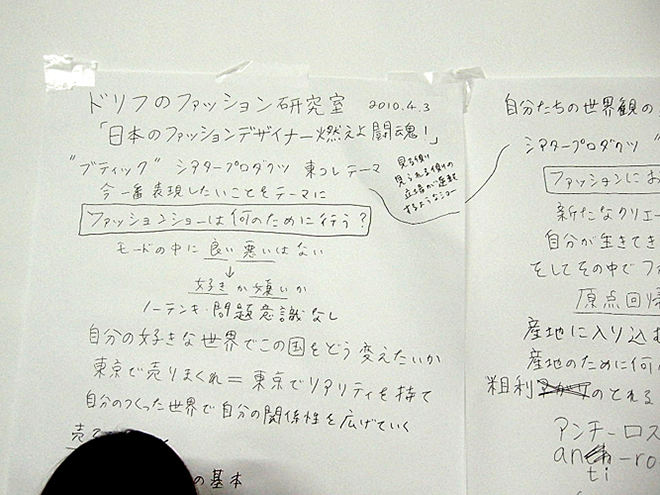 ドリフのファッション研究室 2010.4.3
「日本のファッションデザイナー燃えよ闘魂！」
"ブティック" シアタープロダクツ 東コレテーマ
今一番表現したいことをテーマに
見る側
見られる側の
立場が逆転
するようなショー
ファッションショーは何のために行う？
モードの中に良い悪いはない
↓
好きか嫌いか
ノーテンキ・問題意識なし
自分の好きな世界でこの国をどう変えたいか
東京で売りまくれ＝東京でリアリティを持て
自分のつくった世界で自分の関係性を広げていく
売
の基本
自分たちの世界観の
シアタープロダクツ
ファッションにお
新たなクリエー
自分が生きてき
をしてその中でファ
原点回帰
産地に入り込む
産地のために何
粗利のとれる
アンチーロス
an-ro
ti